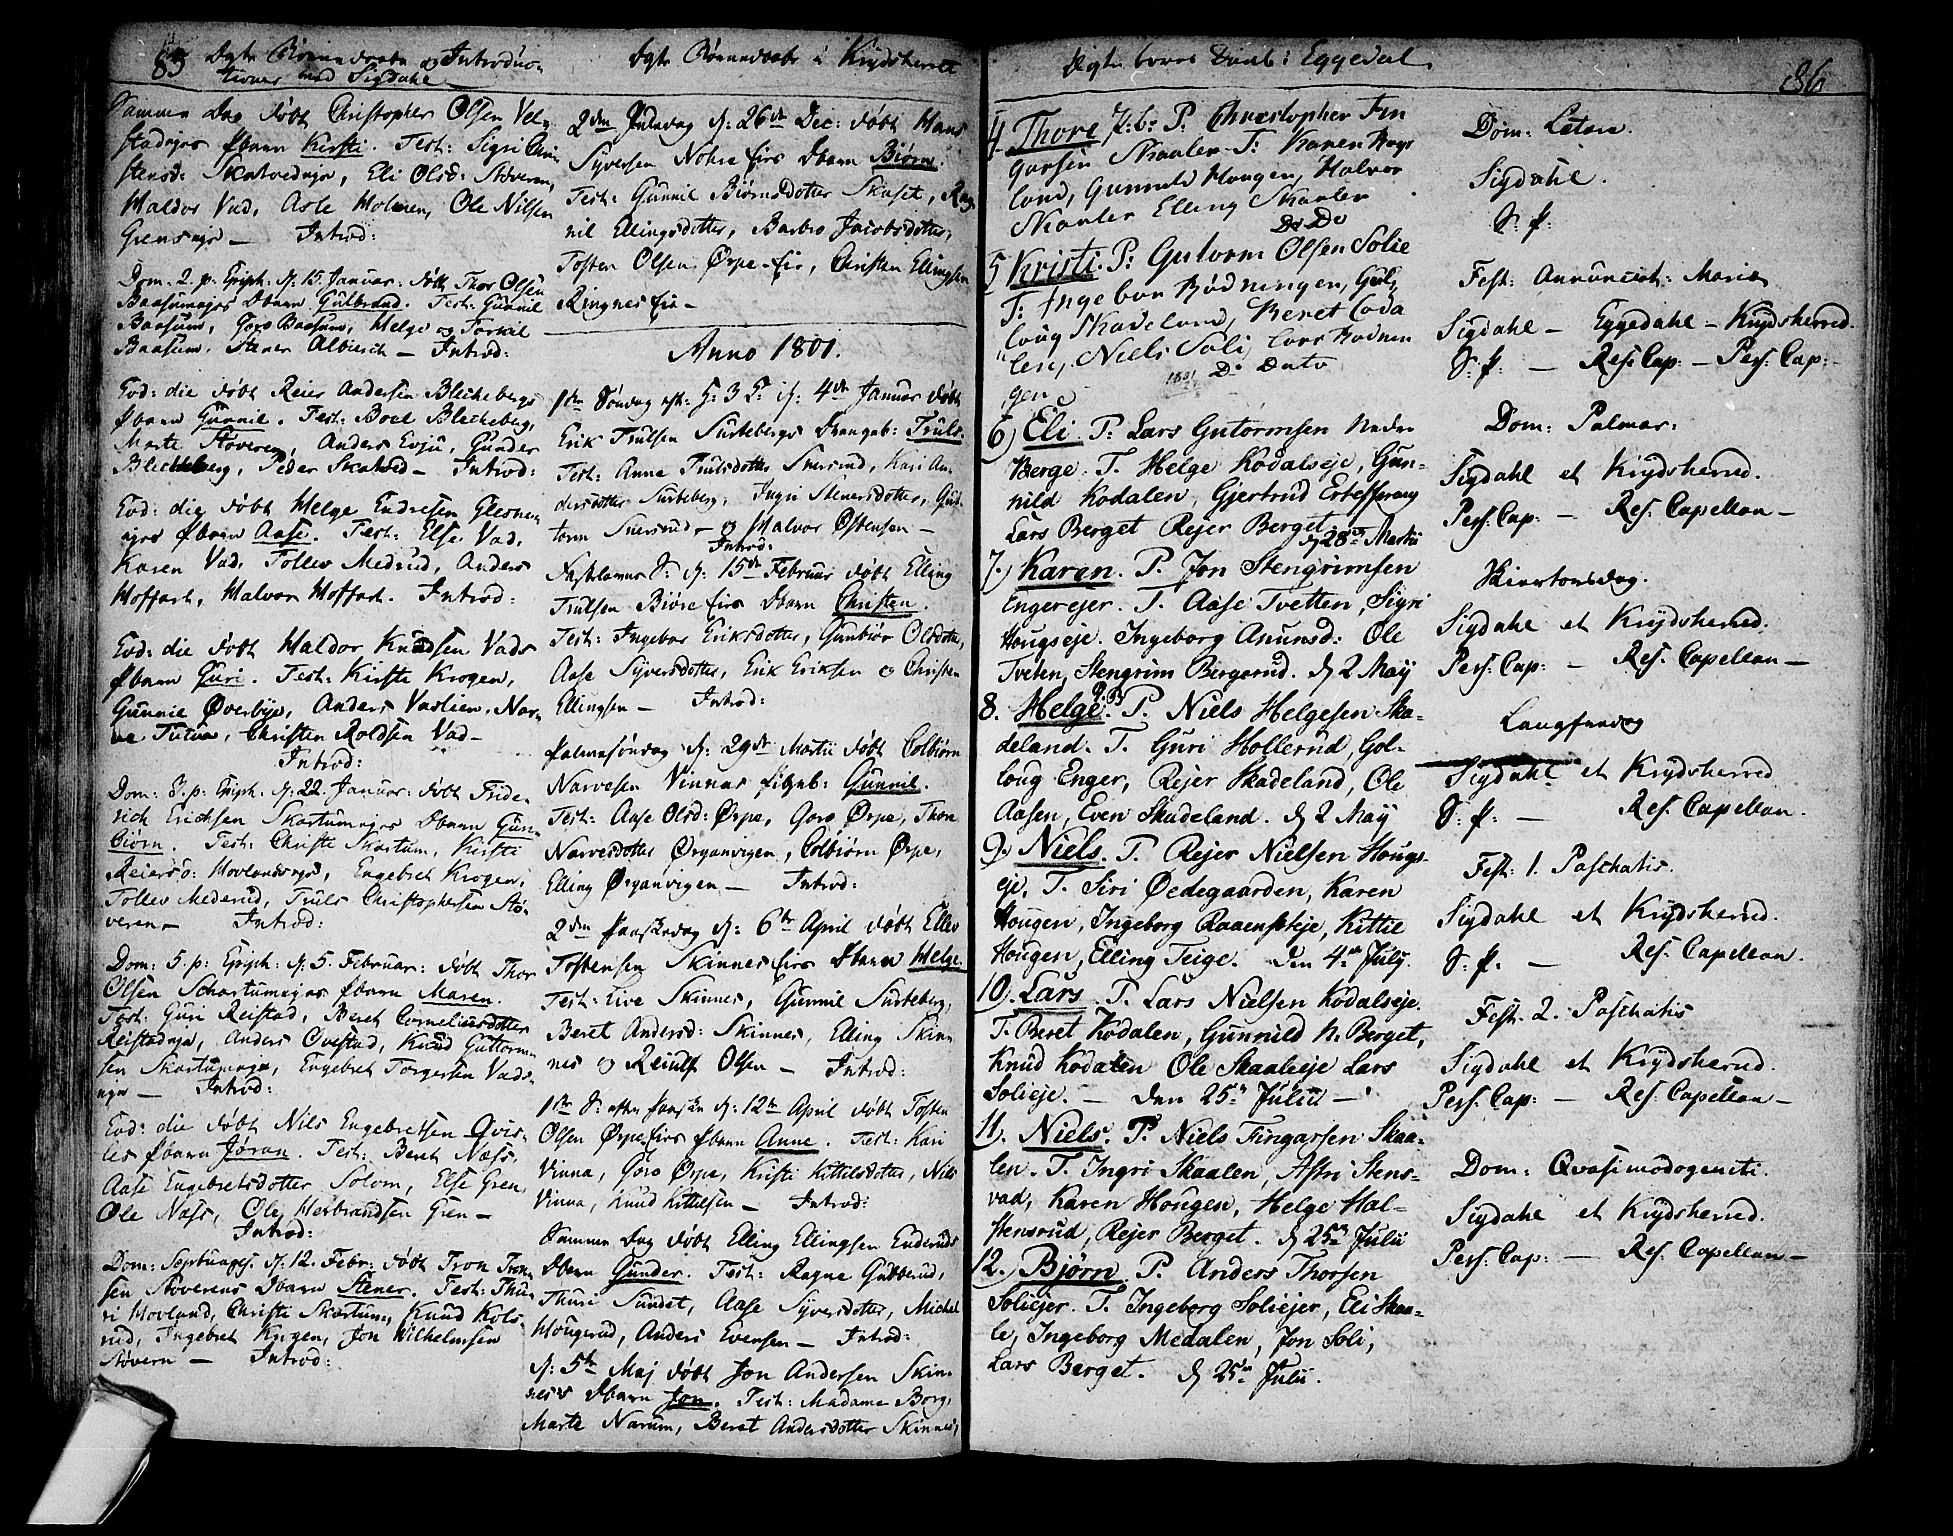 85
Dgte Børnedaabe og Introduc-
tioner med Sigdahl
Samme Dag døbt Christopher Olsen Vel-
stadejes Pbarn Kirsti. Test: Sigri Chri-
stensd: Skatvedeje, Eli Olsd: Støveren,
Haldor Vad, Asle Holmen, Ole Nilsen
Grensejer — Introd:
Dom: 2. p: Epiph: d: 15. Januar: døbt Thor Olsen
Baasumejes Dbarn Gulbrand. Test: Gunnil
Baasum, Goro Baasum, Helge og Torkil
Baasum, Stener Albiersh — Introd:
Eod: die døbt Reier Andersen Blichebergs
Pbarn Gunnil. Test: Boel Blicheberg,
Marte Støveren, Anders Evju, Gunder
Blicheberg, Peder Skatved — Introd:
Eod: die døbt Helge Endresen Glesne-
ejes Pbarn Aase. Test: Else Vad,
Karen Vad, Tollev Medrud, Anders
Hoffart, Halvor Hoffart. Introd:
Eod: die døbt Haldor Knudsen Vads
Pbarn Guri. Test: Kirste Krogen,
Gunnil Øverbye, Anders Vaslien, Nar-
ve, Christen Roldsen Vad —
Introd:
Dom: 3. p: Epiph: d: 22. Januar: døbt Fride-
rich Erichsen Skartumejes Dbarn Gun-
biørn. Test: Christi Skartum, Kirsti
Reiersd: Hovlandseje, Engebret Krogen,
Tollev Mederud, Truls Christophersen Stø-
veren — Introd:
Dom: 5. p: Epiph: d: 5. Februar: døbt Thor
Olsen Schartumejes Pbarn Maren.
Test: Guri Reistad, Beret Corneliusdotter
Reistadeje, Anders Ovestad, Knud Guttorm-
sen Skartumeje, Engebret Torgersen Vads-
eje — Introd:
Eod: die døbt Nils Engebretsen Qvis-
les Pbarn Jøran. Test: Beret Næss,
Aase Engebretsdotter Solom, Else Gren,
Ole Næss, Ole Herbrandsen Gren —
Introd:
Dom: Septuages. d: 12. Febr: døbt Tron Tron-
sen Støverens Dbarn Stener. Test: Thu-
ri Hovland, Christi Skartum, Knud Kols-
rud, Ingebret Krogen, Jon Wilhelmsen
Støvern — Introd:
Dgte Børnedaabe i Krydsherret
2den Juledag d: 26de Dec: døbt Hans
Syversen Nohre fiirs Dbarn Biørn.
Test: Gunnil Biørnsdotter Skaset, Rag-
nil Ellingsdotter, Barbro Jacobsdotter,
Tosten Olsen Ørpe-fir, Christen Ellingsen
Ringnes fir —
Anno 1801.
1ste Søndag eft: H: 3 K: d: 4de Januar døbt
Erik Trulsen Surtebergs Drengeb: Truls.
Test: Anne Trulsdotter Snersrud, Kari An-
dersdotter Surteberg, Ingri Stenersdotter, Gut-
torm Snersrud — og Halvor Østensen —
Introd:
Fastelavns S: d: 15de Februar døbt Elling
Trulsen Biøre firs Dbarn Christen.
Test: Ingebor Eriksdotter, Gunbiør Olsdotter,
Aase Syversdotter, Erik Eriksen og Christen
Ellingsen — Introd:
Palmesøndag d: 29de Martii døbt Colbiørn
Narvesen Vinnas Pigeb: Gunnil.
Test: Aase Olsd: Ørpe, Goro Ørpe, Thore
Narvesdotter Ørganvigen, Colbiørn Ørpe,
Elling Ørganvigen — Introd:
2den Paaskedag d: 6te April døbt Ellev
Tostensen Skinnes firs Dbarn Helge.
Test: Live Skinnes, Gunnil Surteberg,
Beret Andersd: Skinnes, Elling Skin-
nes og Reiulf Olsen — Introd:
1ste S: efter Paaske d: 12te April døbt Tosten
Olsen Ørpefirs Pbarn Anne. Test: Kari
Vinna, Goro Ørpe, Kirsti Kittelsdotter, Nils
Vinna, Knud Kittelsen — Introd:
Samme Dag døbt Elling Ellingsen Enderuds
Dbarn Gunder. Test: Ragne Gubberud,
Thuri Sundet, Aase Syversdotter, Michel
Hougerud, Anders Evensen — Introd:
d: 5te Maj døbt Jon Andersen Skin-
nes Dbarn Jon. Test: Madame Borg,
Marte Narum, Beret Andersdotter Skinnes,
Digte børns Daab i Eggedal
4 Thore P: Christopher Fin
garsen Skaalen. T: Karen Hags
lond, Gunnild Hougen, Halvor
Skaalen Elling Skaalen
Do Do
5 Kristi. P: Gutorm Olsen Solie
T: Ingebor Bødningen, Gul-
loug Skadeland, Beret Coda
len, Niels Soli, Lars Bodnen
gen
1801
Do Dato
6) Eli. P: Lars Gutormsen Neder
Berge. T. Helge Kodalseje, Gun-
nild Kodalen, Gjertrud Ertesprang
Lars Berget Rejer Berget.
d 28de Martii
7.) Karen. P. Jon Stengrimsen
Engerejer. T. Aase Tvetten, Sigri
Hougseje. Ingeborg Asmunsd: Ole
Tveten, Stengrim Bergerud. d 2 May
8. Helge. P. Niels Helgesen Ska-
deland. T. Guri Hollerud, Gol-
loug Enger, Rejer Skadeland, Ole
Aasen, Even Skadeland. d 2 May
9.) Niels. P. Rejer Nielsen Hougs-
eje, T. Siri Ødegaarden, Karen
Hougen, Ingeborg Raaenseje, Kittil
Hougen, Elling Teige. Den 4de July.
10). Lars. P. Lars Nielsen Kodalseje.
T. Beret Kodalen, Gunnild N. Berget,
Knud Kodalen Ole Skaaleeje Lars
Solieje. — Den 25de Julii —
11). Niels. P. Niels Fingarsen Skaa-
len. T. Ingri Skaalen, Astri Stens-
vad, Karen Hougen, Helge Hal-
stensrud, Rejer Berget. d 25de Julii
12.) Bjørn. P. Anders Thorsen
Soliejer. T. Ingeborg Soliejer, Eli Skaa-
le, Ingeborg Medalen, Jon Soli,
Lars Berget. d 25de Julii.
86
Dom: Letare.
Sigdahl.
S: P:
Fest: Annunciat: Mariæ
Sigdahl — Eggedahl — Krydsherred.
S: P: — Res: Cap: — Pers: Cap: —
Dom: Palmar:
Sigdahl et Krydsherred.
Pers: Cap: — Res: Capellan —
Skiertorsdag.
Sigdahl et Krydsherred.
Pers: Cap: — Res: Capellan —
Langfredag
Sigdahl et Krydsherred
S: P: — Res: Capellan.
Fest: 1. Paschatis.
Sigdahl et Krydsherred.
S: P. — Res: Capellan.
Fest. 2. Paschatis
Sigdahl et Krydsherred.
Pers: Cap: — Res: Capellan —
Dom: Qvasimodogeniti.
Sigdahl et Krydsherred.
Pers: Cap: — Res: Capellan —